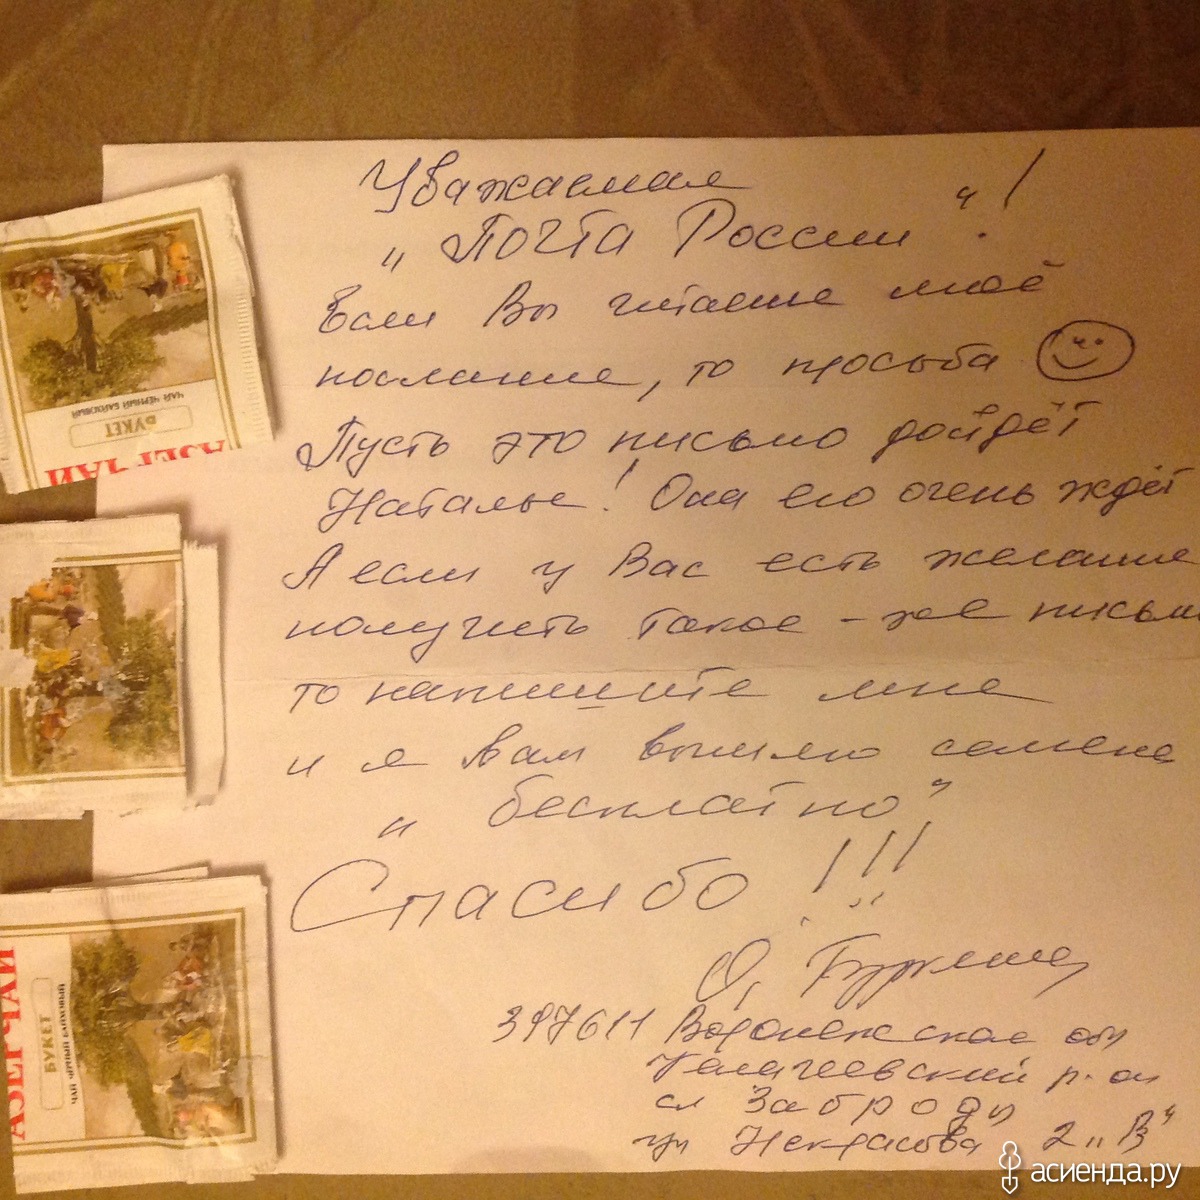 Уважаемая
„ Почта России “!
Если Вы читаете моё
послание, то просьба
Пусть это письмо дойдёт
Наталье! Она его очень ждёт
А если у Вас есть желание
получить такое - же письмо
то напишите мне
и я Вам вышлю семена
„ бесплатно “
Спасибо!!!
О,
397611 Воронежская обл
Калачеевский р-он
сл Заброды
ул Некрасова 2 „В“
АЗЕРЧАЙ
БУКЕТ
ЧАЙ ЧЁРНЫЙ БАЙХОВЫЙ
АЗЕРЧАЙ
БУКЕТ
ЧАЙ ЧЁРНЫЙ БАЙХОВЫЙ
асиенда.ру